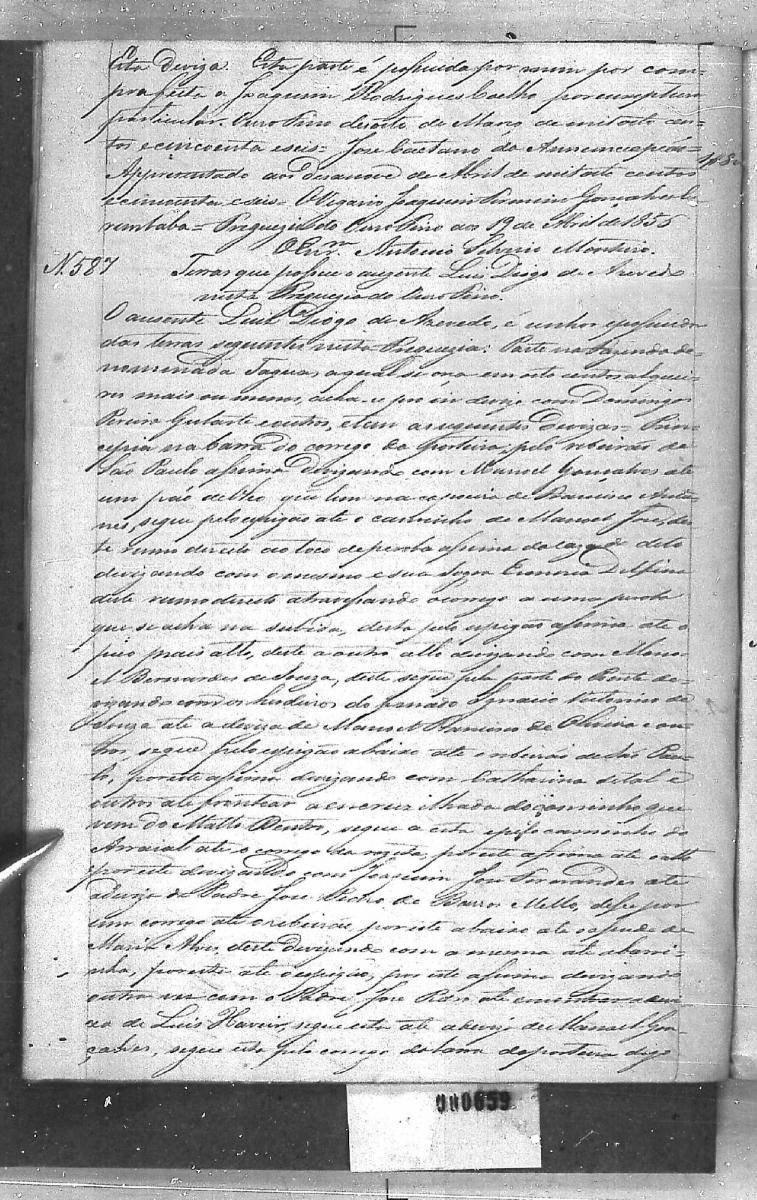 Esta deviza. Esta parte é possuida por mim por com-
pra feita a Joaquim Rodrigues Coelho por escriptura
particular. Ouro Fino de Março de mil oito cen-
tos e cincoenta e seis = José Caetano da Annunciação =
Appresentado aos desanove de Abril de mil oito centos
e cincoenta e seis = O Vigario Joaquim Firmino Gonçalves
= Freguezia do Ouro Fino aos 19 de Abril de 1856
O Escr.m Antonio Silverio Monteiro.
N. 587 Terras que possue o auzente Luis Diogo de Azevedo
nesta Freguezia do Ouro Fino.
O ausente Luis Diogo de Azevedo, é senhor e possuidor
das terras seguintes nesta Freguezia: Parte na Fazenda de-
nominada Taguas, a qual se orça em oito centos alquei-
res mais ou menos, acha-se por in diviso com Domingos
Pereira Gularte e outros, e tem as seguintes devizas = Prin-
cipia na barra do corrego da Porteira, pelo ribeirão de
São Paulo assima devizando com Manoel Gonçalves até
um páo de oleo que tem na capoeira de Francisco Antu-
nes, segue pelo espigão até o caminho de Manoel José, des-
te rumo direito ao toco de peroba assima da caza de dito
devizando com o mesmo e sua Sogra Delfina
deste rumo direito atravessando o corrego a uma peroba
que se acha na subida, desta pelo espigão assima até o
pico mais alto, deste a outro alto devizando com Mano-
el Bernardes de Souza, deste segue pela parte do Poente de-
vizando com os herdeiros do finado Ignacio Victorino de
Souza até a deviza de Manoel Francisco de Oliveira e ou-
tros, segue pelo espigão abaixo até o ribeirão de São Pau-
lo, por este assima devizando com Catharina de tal e
outros até frontear a encruzilhada do caminho que
vem do Matto Dentro, segue a esta e pelo caminho do
Arraial até o corrego da, por este assima até o alto
por este devizando com Joaquim José Fernandes até
a deviza do Padre José Pedro de Barros Mello, desse por
um corrego até o ribeirão, por este abaixo até de
Maria Alves, deste devizando com a mesma até a barri-
nha, por esta até o espigão, por este assima devizando
outra vez com o Padre José Pedro até encontrar
de Luis Xavier, segue esta até a deviza de Manoel Gon-
çalves, segue esta pelo corrego da barra da porteira digo
000659